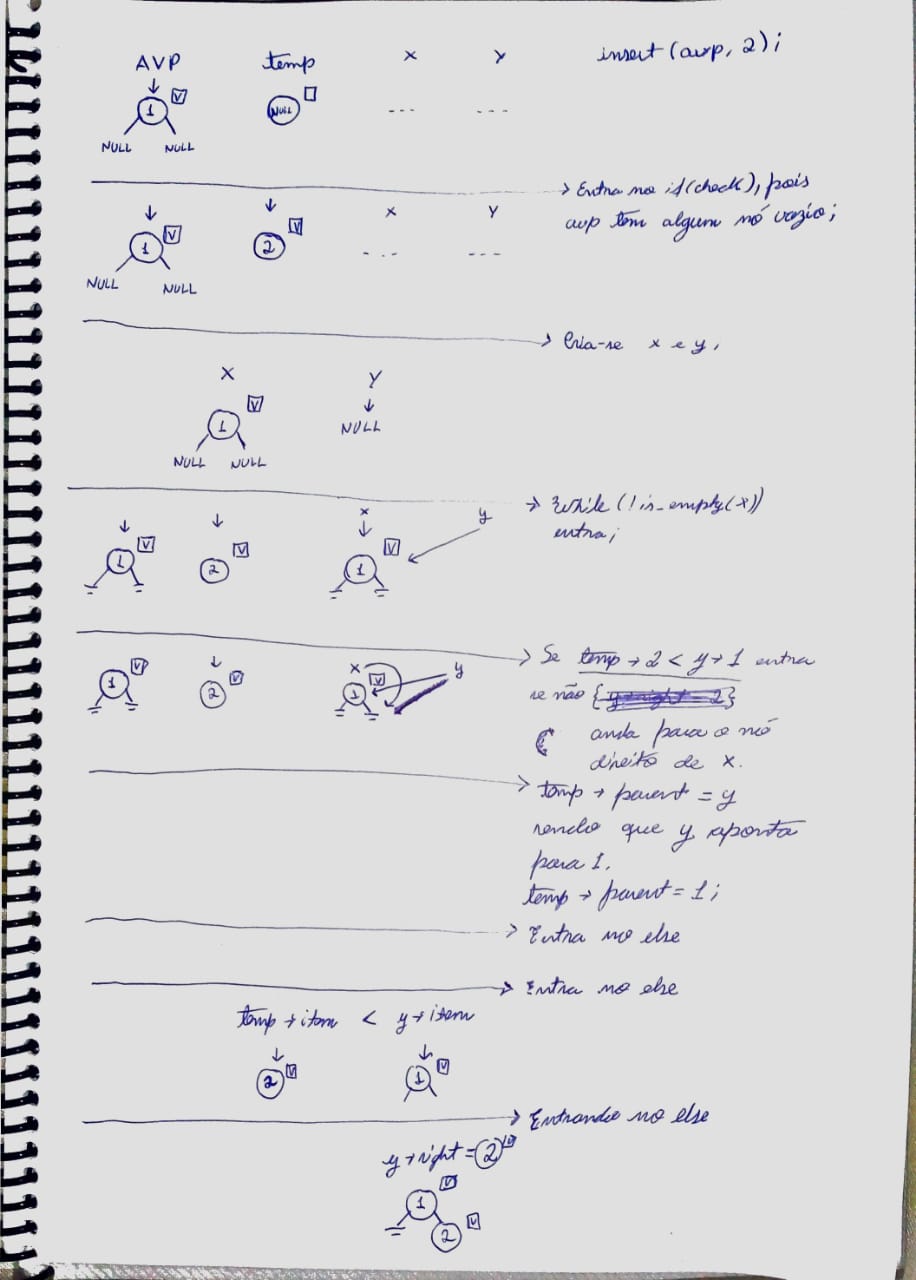 AVP temp x y insert(avp, 2);
V
1 NULL --- ---
NULL NULL
→ Entra no if(check), pois
avp tem algum nó vazio;
x y
V V
1 2 --- ---
NULL NULL
→ Cria-se x e y,
X Y
V
1 NULL
NULL NULL
→ While (!is_empty(x))
entra;
x y
V V V
1 2 1
→ Se temp → 2 < y → 1 entra
se não {y→right = 2}
anda para o nó
direito de x.
x y
VP V V
1 2 1
→ temp → parent = y
sendo que y aponta
para 1.
temp → parent = 1;
→ Entra no else
→ Entra no else
temp → item < y → item
V V
2 1
→ Entrando no else
y → right = 2 V
V
1
V
2